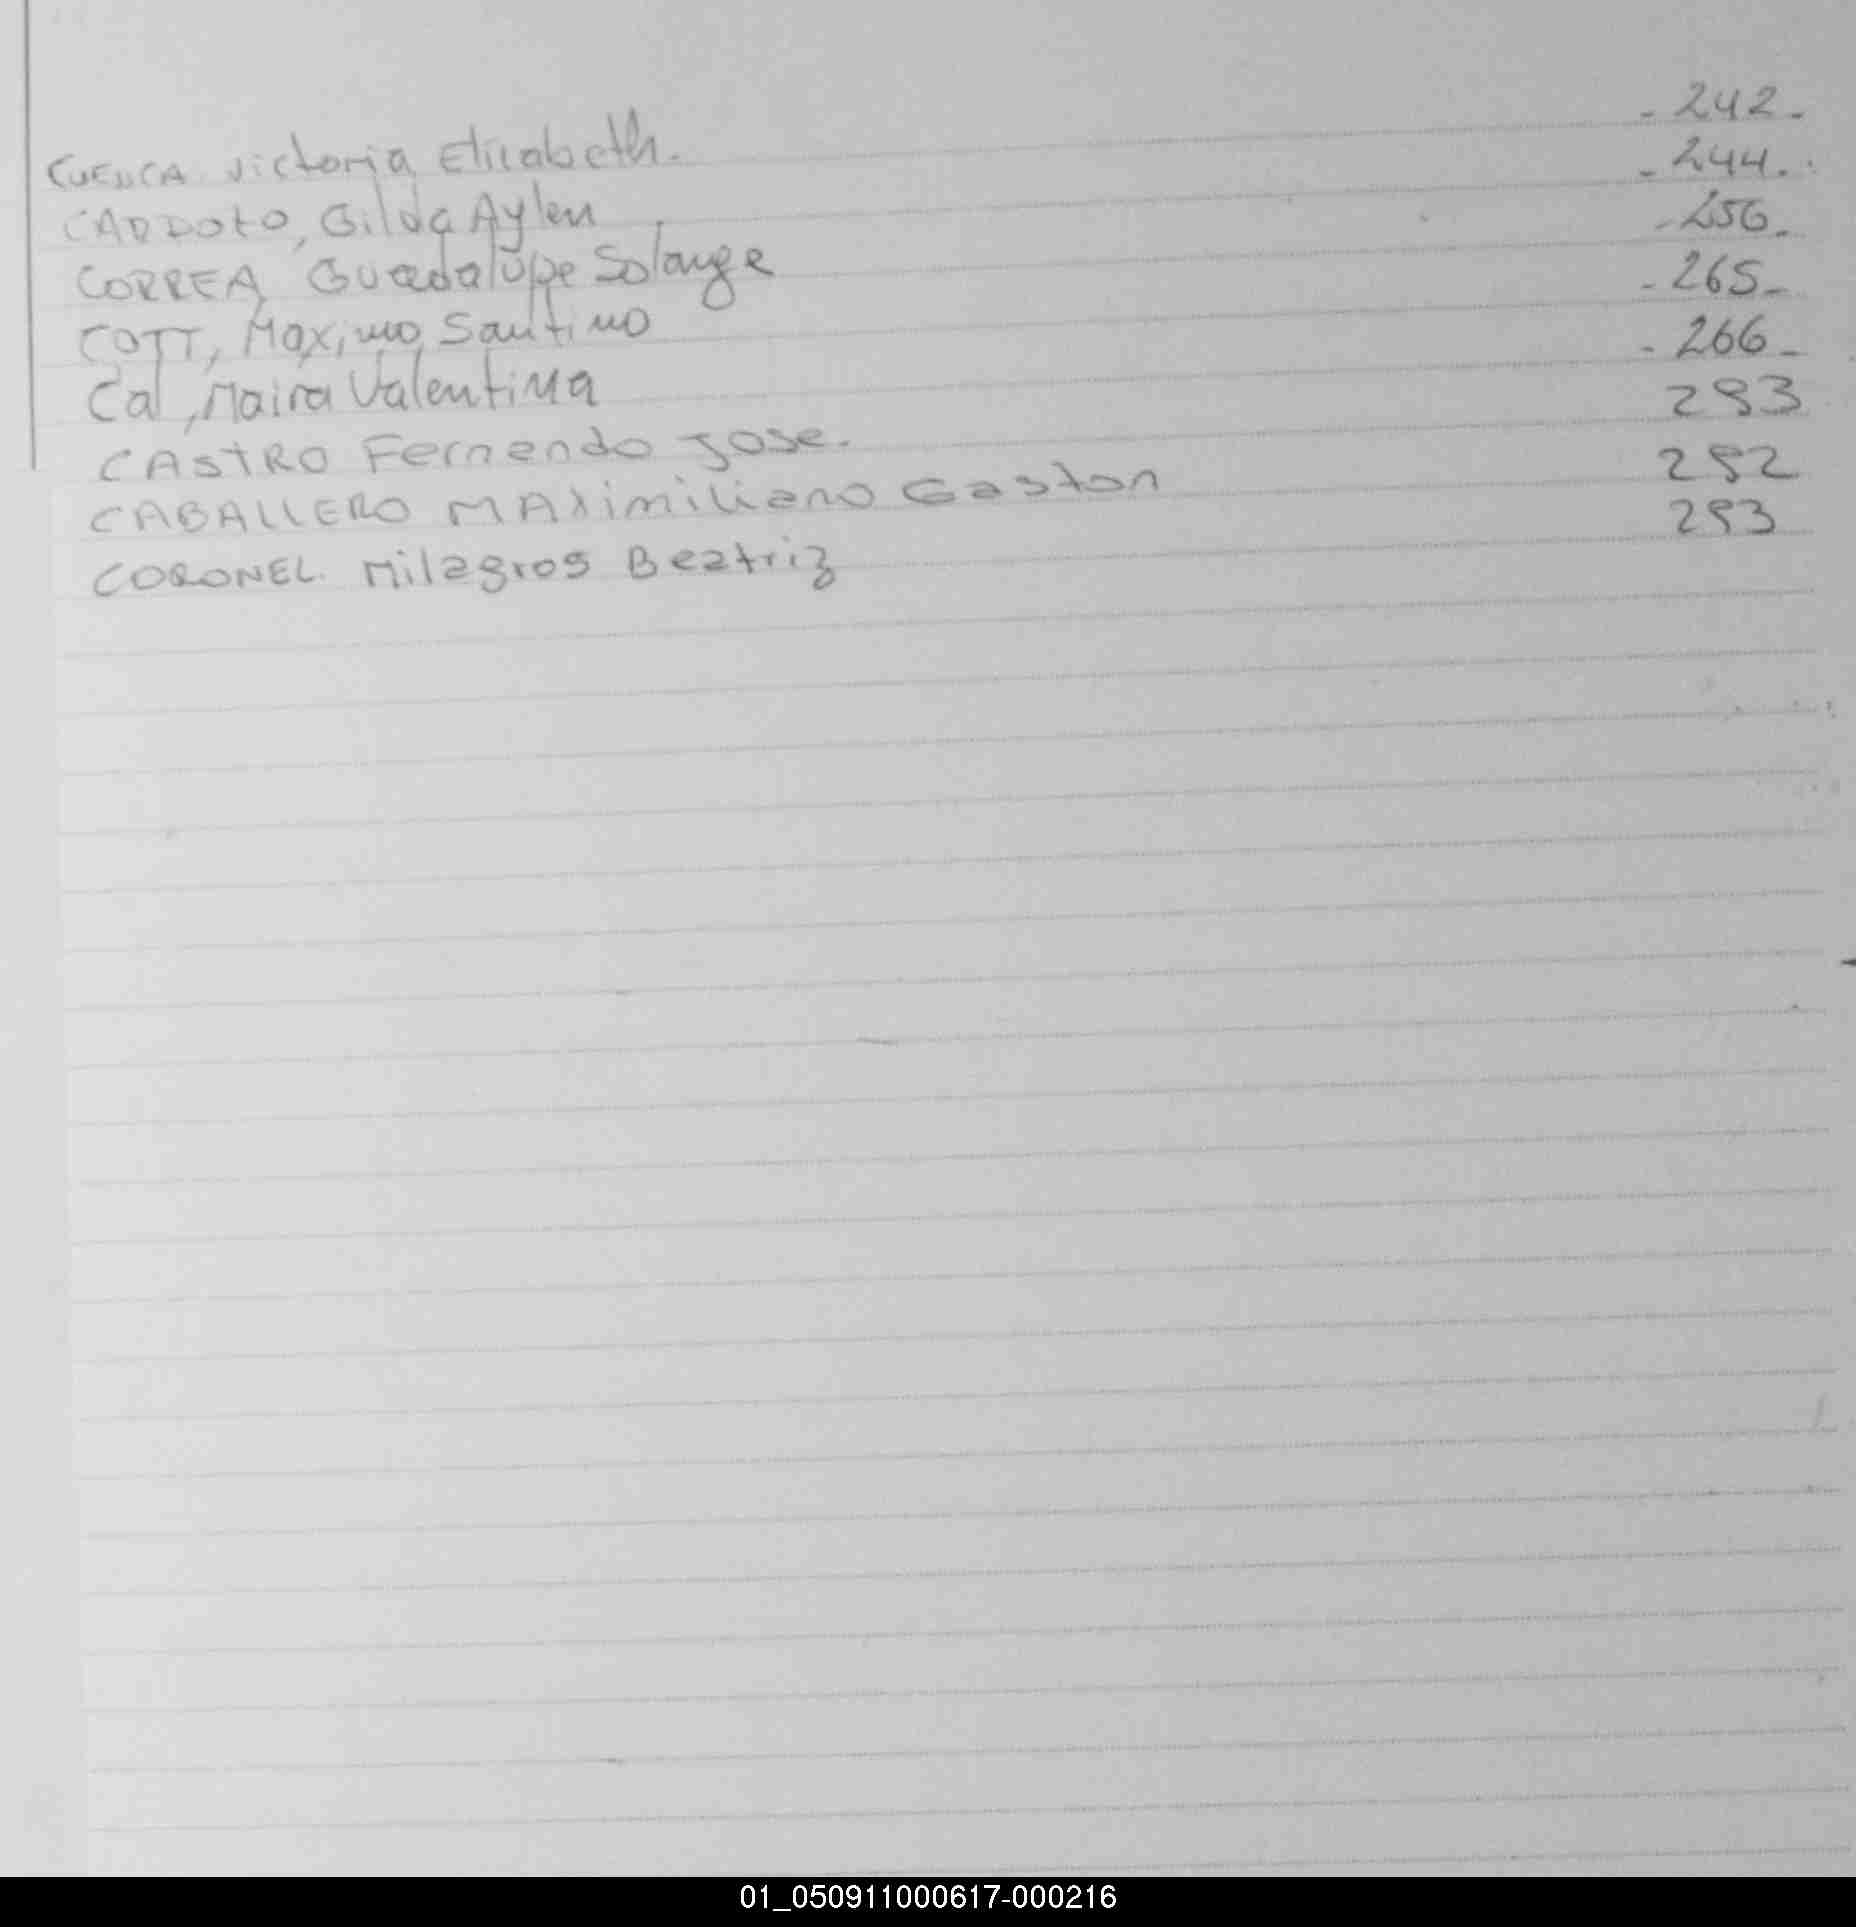 CUENCA Victoria Elizabeth. - 242 -
CARDOZO, Gilda Aylen - 244.
CORREA, Guadalupe Solange - 256.
COTT, Maximo Santino - 265 -
Cal, Maira Valentina - 266 -
CASTRO Fernando Jose. 293
CABALLERO MAximiliano Gaston 292
CORONEL Milagros Beatriz 293
01_050911000617-000216